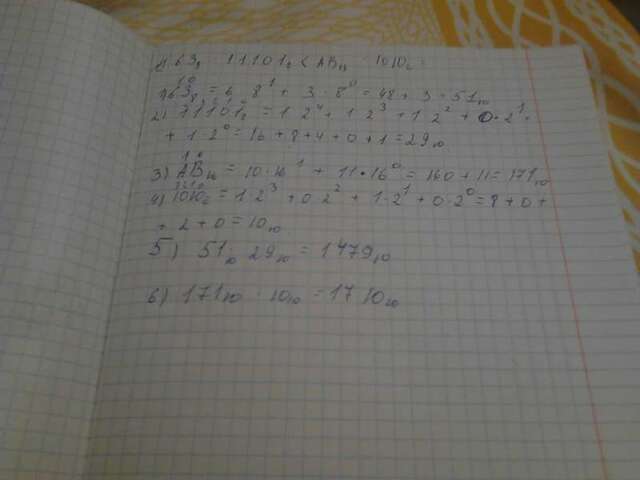 63₈ · 11101₂ < AB₁₆ · 1010₂
1) 63₈ = 6 · 8¹ + 3 · 8⁰ = 48 + 3 = 51₁₀
2) 11101₂ = 1 · 2⁴ + 1 · 2³ + 1 · 2² + 0 · 2¹ +
+ 1 · 2⁰ = 16 + 8 + 4 + 0 + 1 = 29₁₀
3) AB₁₆ = 10 · 16¹ + 11 · 16⁰ = 160 + 11 = 171₁₀
4) 1010₂ = 1 · 2³ + 0 · 2² + 1 · 2¹ + 0 · 2⁰ = 8 + 0 +
+ 2 + 0 = 10₁₀
5) 51₁₀ · 29₁₀ = 1479₁₀
6) 171₁₀ · 10₁₀ = 1710₁₀